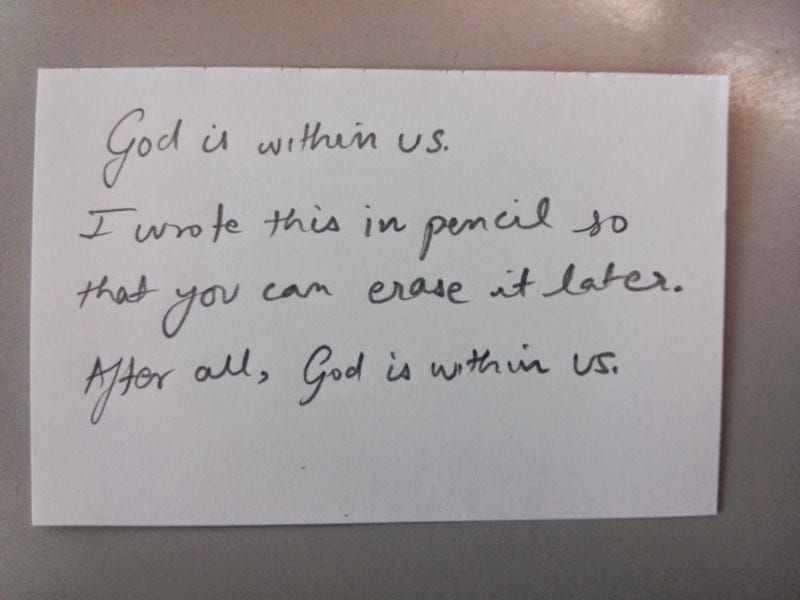 God is within us.
I wrote this in pencil so
that you can erase it later.
After all, God is within us.